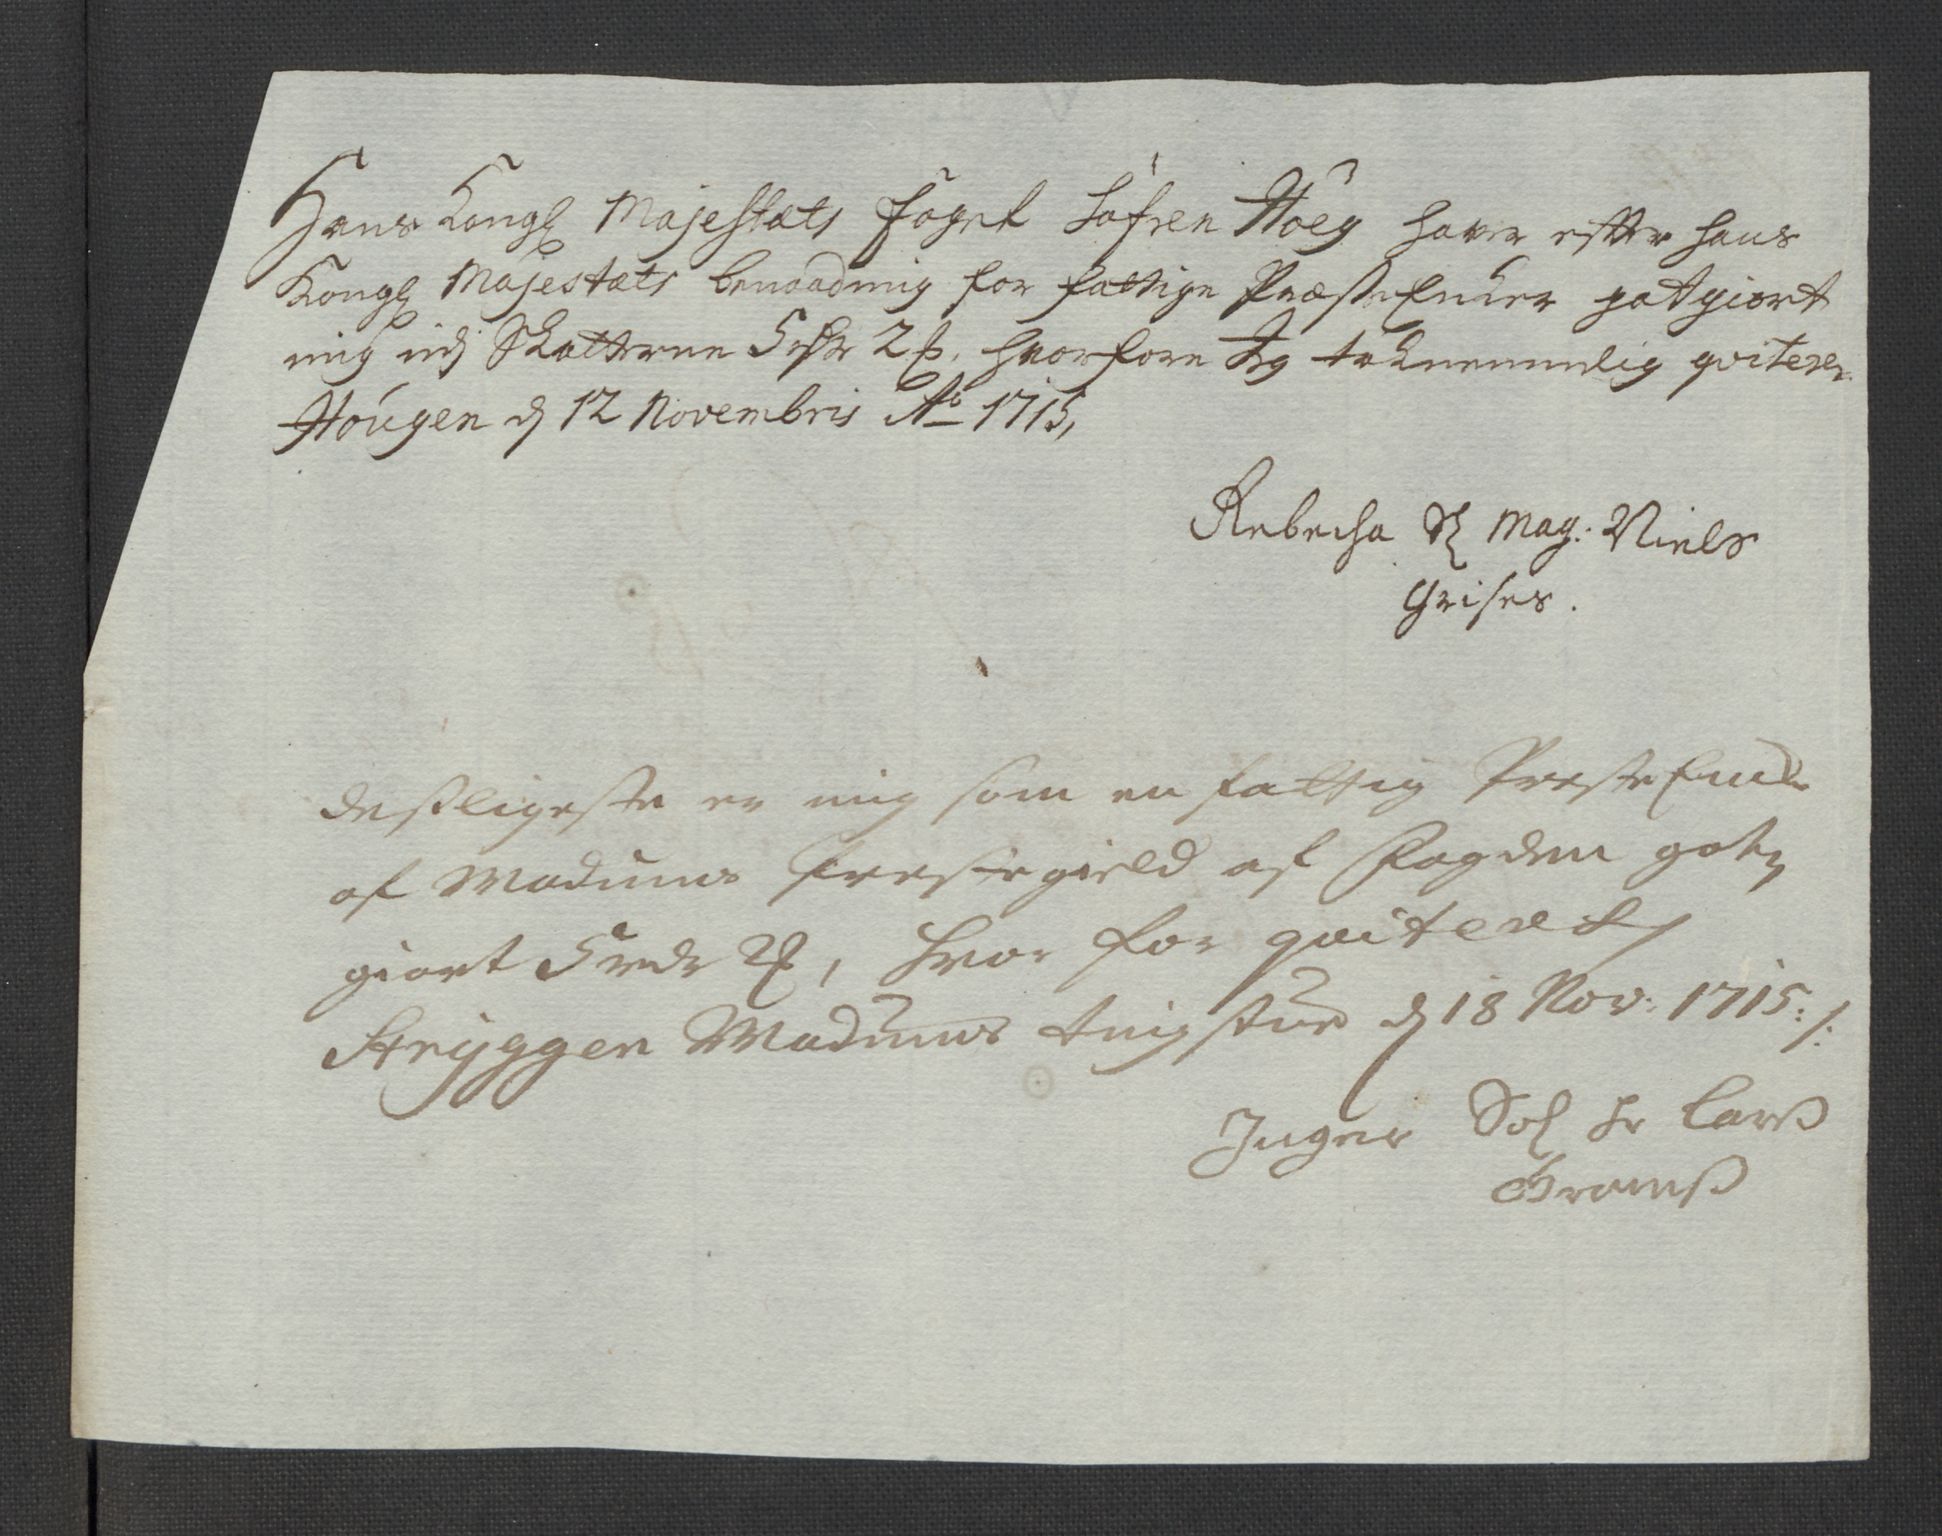 Hans Kongl Majestæts Foget Söfren Höeg haver effter hans
Kongl Majestæts benaadning for fattige Præste Encker gotgiort
mig udj Skatterne 5 rdr 2 ß. hvorfore Jeg tacknemmelig qviterer.
Hougen d 12 Novembris Ao 1715,
Rebecha Sl Mag: Niels
Grises.
Desligeste er mig som en fattig Preste Encke
af Modums Prestegield af Fogden got
giort 5 rdr 2 ß, hvor for qviteres
Stryggen Modums tingstue d 18 Nov: 1715:/:
Inger Sol Hr Larß
Gramß